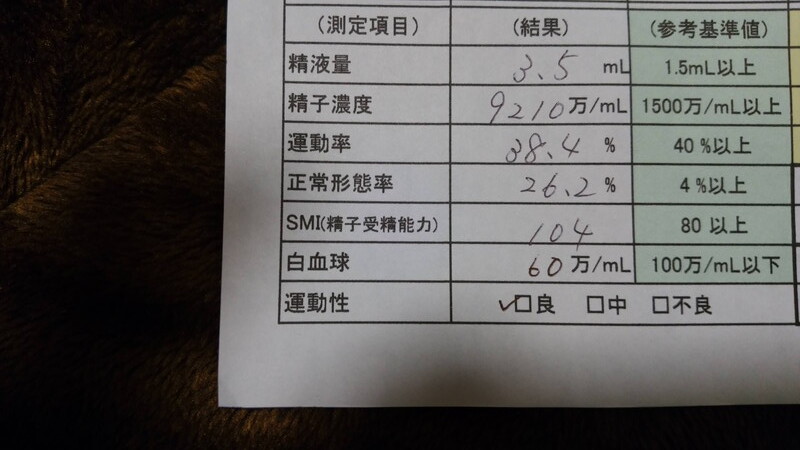 (測定項目) (結果) (参考基準値)
精液量 3.5 mL 1.5mL以上
精子濃度 9210万/mL 1500万/mL以上
運動率 38.4 % 40 %以上
正常形態率 26.2 % 4 %以上
SMI(精子受精能力) 104 80 以上
白血球 60万/mL 100万/mL以下
運動性 ✓□良 □中 □不良